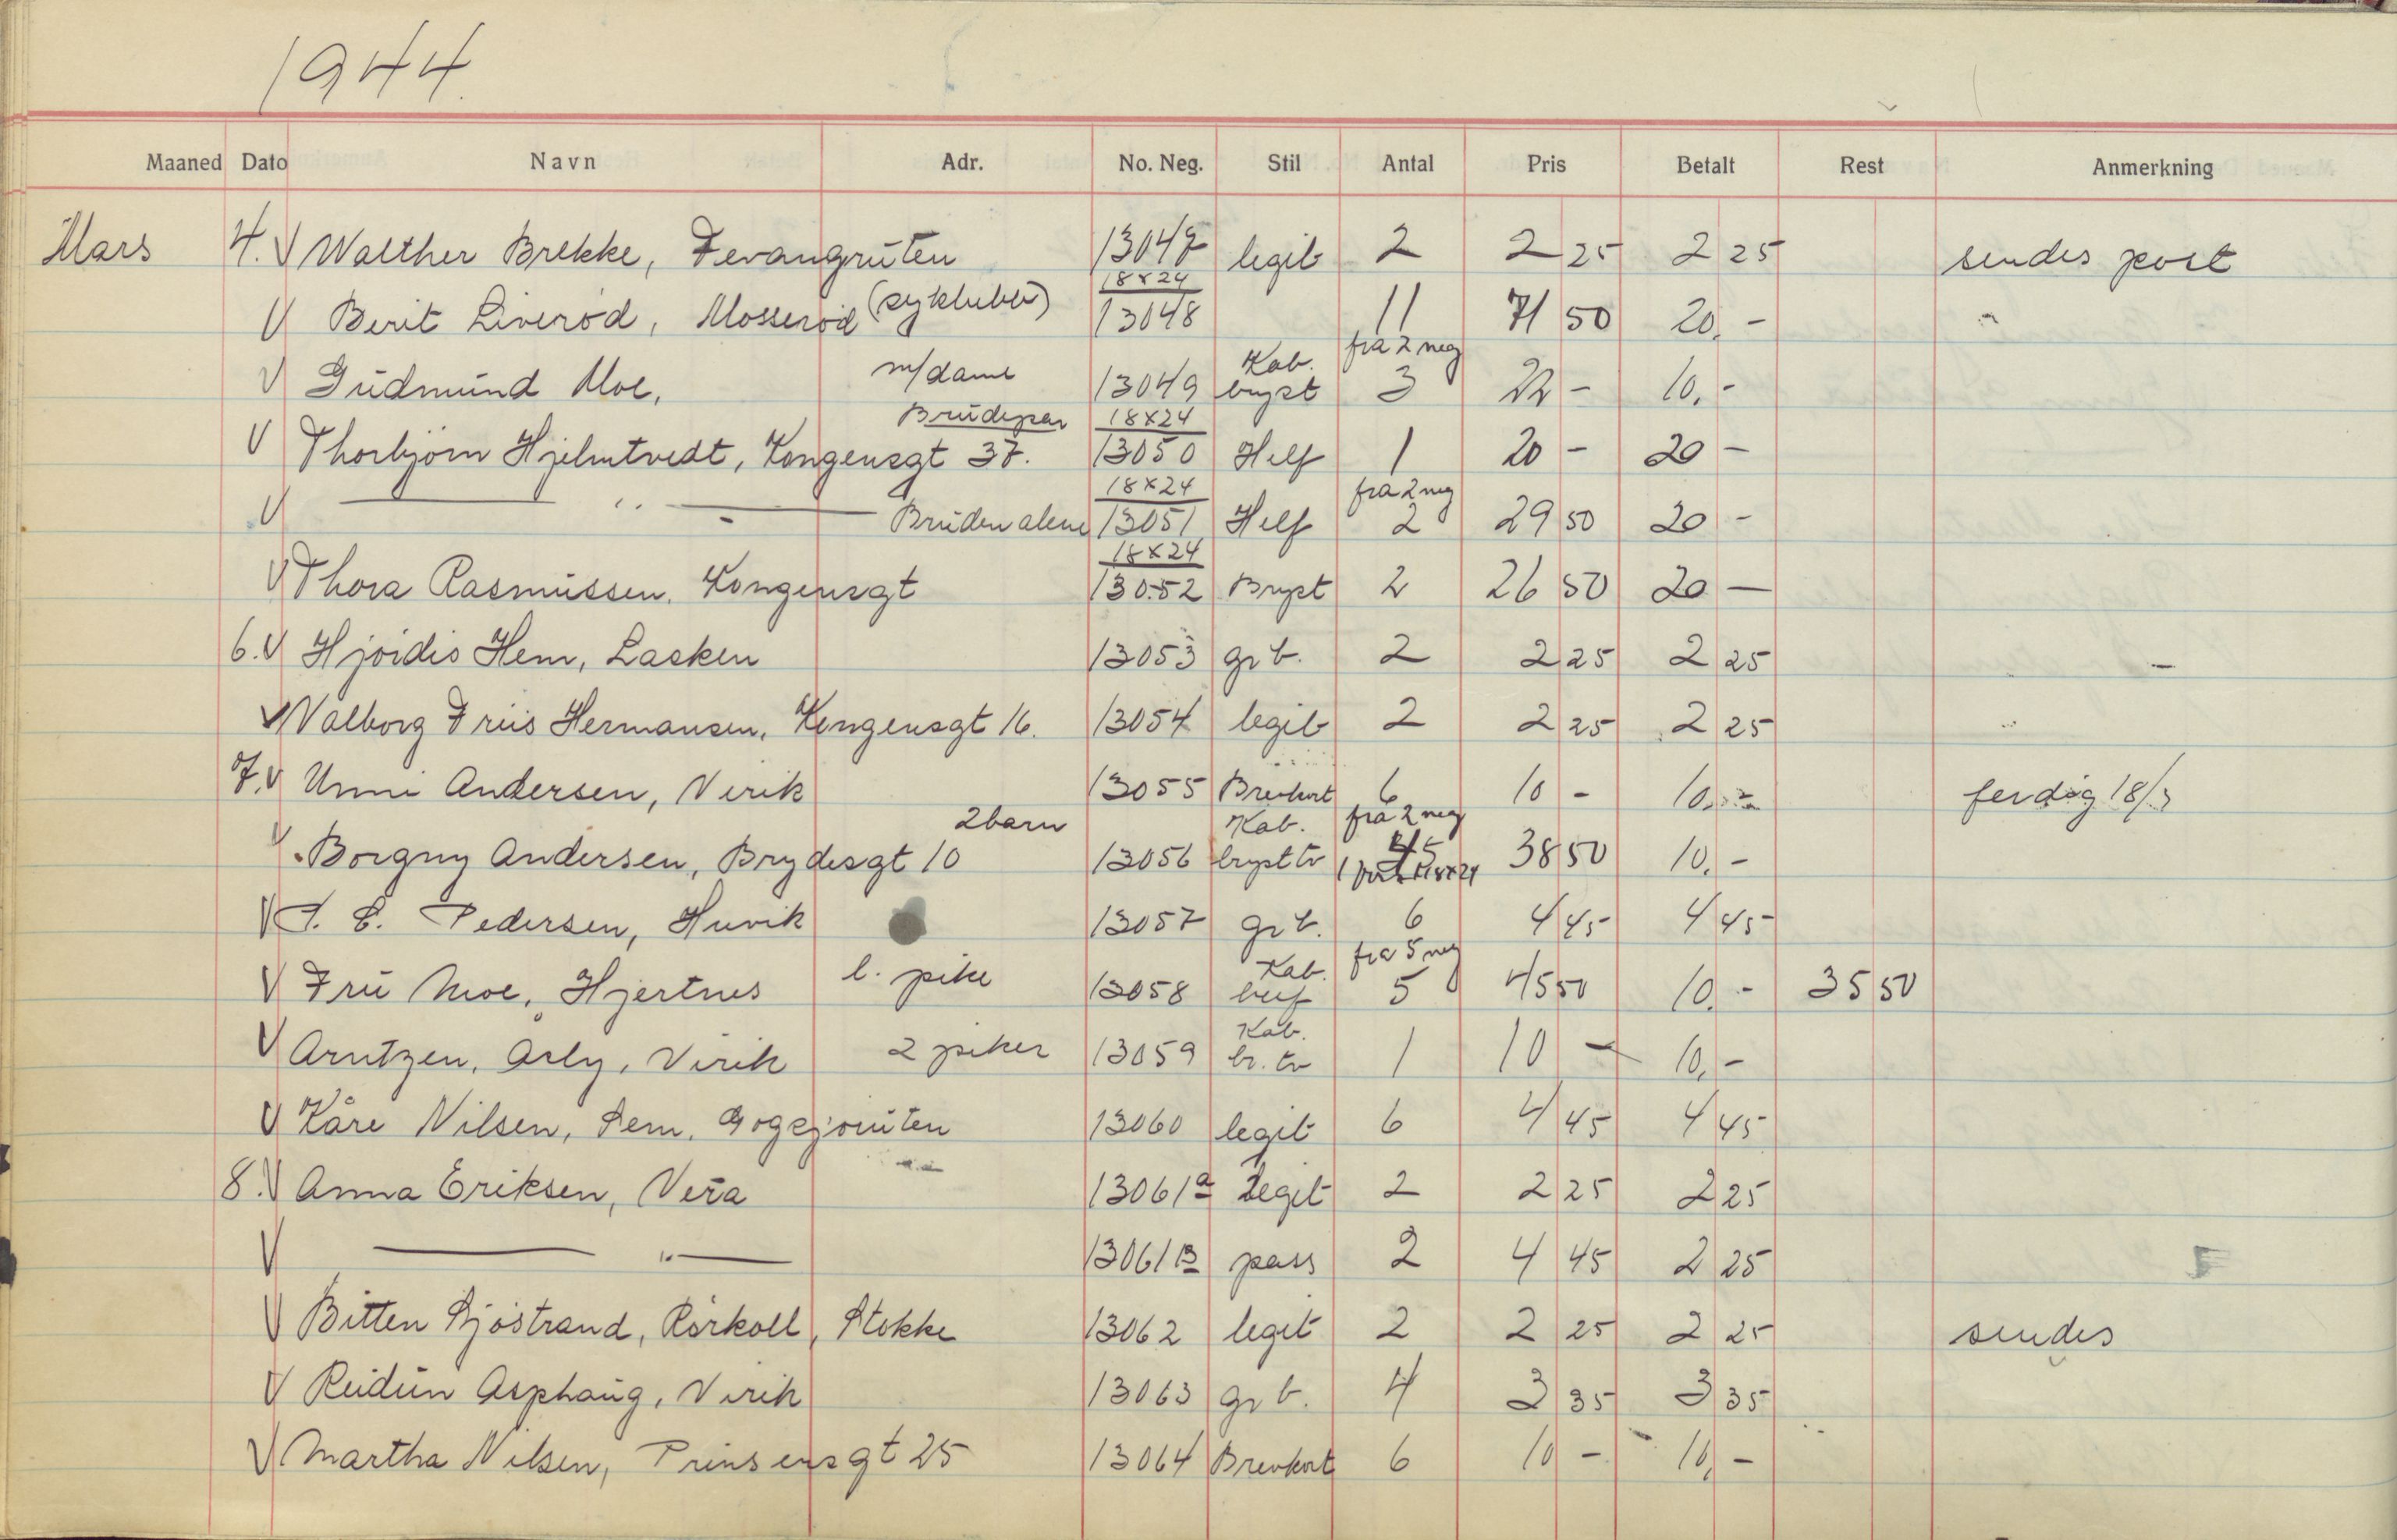 1944
Maaned Dato Navn Adr. No. Neg. Stil Antal Pris Betalt Rest Anmerkning
Mars 4. V Walther Brekke, Fevangruten 13047 legit 2 2 25 2 25 sendes post
18x24
V Berit Liverød, Mosserød (syklubb) 13048 11 71 50 20,- "
Kab. fra 2 neg
V Gudmund Moe, m/dame 13049 bryst 3 22 - 10,-
Brudepar 18x24
V Thorbjørn Hjelmtvedt, Kongensgt 37. 13050 Helf 1 20 - 20 -
18x24 fra 2 neg
V — " — Bruden alene 13051 Helf 2 29 50 20 -
18x24
V Thora Rasmussen, Kongensgt 13052 Bryst 2 26 50 20 —
6. V Hjørdis Hem, Lasken 13053 gr b. 2 2 25 2 25 -
V Valborg Friis Hermansen, Kongensgt 16. 13054 legit 2 2 25 2 25 "
7. V Unni Andersen, Virik 13055 Brevkort 6 10 - 10,- ferdig 18/3
2 barn Kab. fra 2 neg
V Borgny Andersen, Brydesgt 10 13056 bryst tv 38 50 10,-
V Pedersen, Huvik 13057 gr b. 6 4 45 4 45
l. pike Kab. fra 5 neg
V Fru Moe, Hjertnes 13058 5 45 50 10.- 35 50
Kab.
V Arntzen, Asly, Virik 2 piker 13059 br. tv 1 10 - 10,-
V Kåre Nilsen, Sem, Gogsjøruten 13060 legit 6 4 45 4 45
8. V Anna Eriksen, Vera 13061a legit 2 2 25 2 25
V — " — 13061B pass 2 4 45 2 25
V Bitten Sjøstrand, Rørkoll, Stokke 13062 legit 2 2 25 2 25 sendes
V Reidun Asphaug, Virik 13063 gr b. 4 3 35 3 35
V Martha Nilsen, Prinsensgt 25 13064 Brevkort 6 10 - 10,-